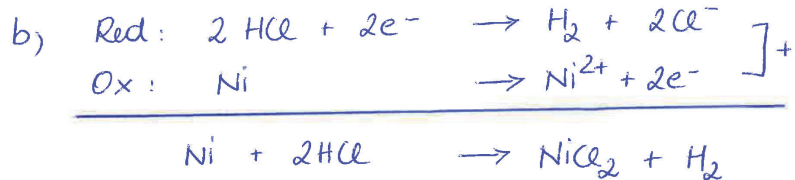 b) Red: 2 HCl + 2e⁻ → H₂ + 2Cl⁻
Ox: Ni → Ni²⁺ + 2e⁻ ] +
Ni + 2HCl → NiCl₂ + H₂